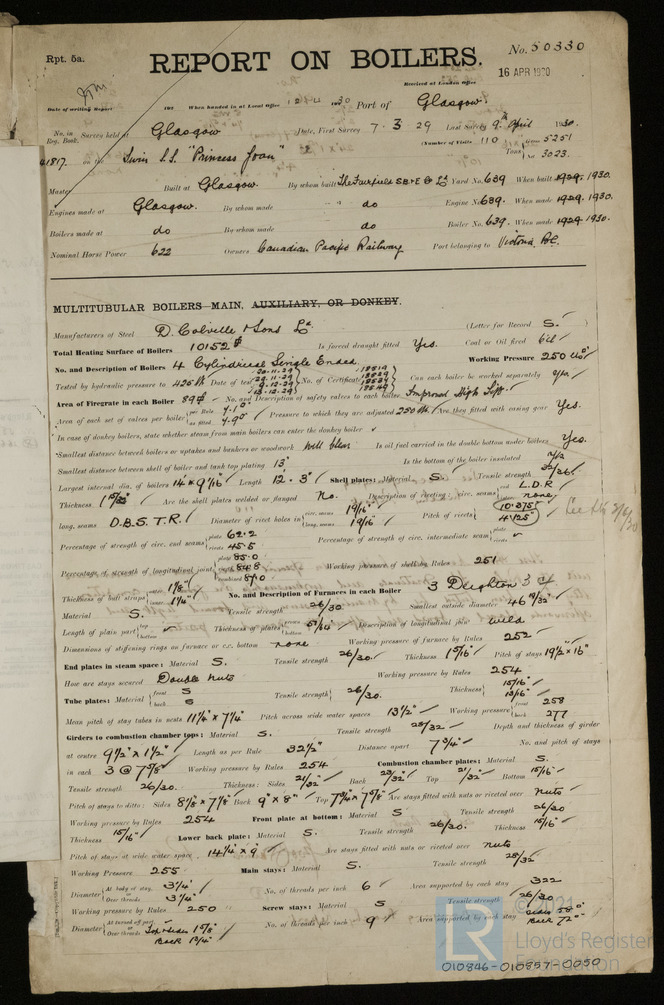 Rpt. 5a.
REPORT ON BOILERS.
No. 50330
16 APR 1930
Received at London Office
Date of writing Report 192 When handed in at Local Office 12.4.1930 Port of Glasgow.
No. in Reg. Book. Survey held at Glasgow Date, First Survey 7.3.29 Last Survey 9th April 1930.
(Number of Visits 110) Gross 5251
41817. on the Twin S.S. "Princess Joan" Tons Net 3023.
Master Built at Glasgow. By whom built The Fairfield S.B. & E. Co Ld Yard No. 639 When built 1929-1930.
Engines made at Glasgow. By whom made do Engine No. 639. When made 1929-1930.
Boilers made at do By whom made do Boiler No. 639. When made 1929-1930.
Nominal Horse Power 622 Owners Canadian Pacific Railway Port belonging to Victoria, B.C.
MULTITUBULAR BOILERS MAIN, AUXILIARY, OR DONKEY.
Manufacturers of Steel D. Colville & Sons Ld. (Letter for Record S.)
Total Heating Surface of Boilers 10152 Is forced draught fitted Yes. Coal or Oil fired Oil
No. and Description of Boilers 4 Cylindrical Single Ended Working Pressure 250
Tested by hydraulic pressure to 425 Date of test No. of Certificate Can each boiler be worked separately Yes.
Area of Firegrate in each Boiler No. and Description of safety valves to each boiler Improved High Lift.
Area of each set of valves per boiler per Rule as fitted Pressure to which they are adjusted Are they fitted with easing gear Yes.
In case of donkey boilers, state whether steam from main boilers can enter the donkey boiler
Smallest distance between boilers or uptakes and bunkers or woodwork well clear Is oil fuel carried in the double bottom under boilers Yes.
Smallest distance between shell of boiler and tank top plating 13" Is the bottom of the boiler insulated
Largest internal dia. of boilers 14' 9 1/16" Length 12' 3" Shell plates: Material S. Tensile strength
Thickness 1 15/32" Are the shell plates welded or flanged No. Description of riveting: circ. seams L.D.R none.
long. seams D.B.S. T.R. Diameter of rivet holes in circ. seams 1 9/16 long. seams 1 9/16 Pitch of rivets 10.375 4.125
Percentage of strength of circ. end seams plate 62.2 rivets 45.5 Percentage of strength of circ. intermediate seam
Percentage of strength of longitudinal joint plate 85.0 rivets combined 87.0 Working pressure of shell by Rules 251
Thickness of butt straps outer 1 1/8" inner 1 1/4" No. and Description of Furnaces in each Boiler 3 Deighton
Material S. Tensile strength 26/30 Smallest outside diameter
Length of plain part top bottom Thickness of plates crown bottom Description of longitudinal joint Weld
Dimensions of stiffening rings on furnace or c.c. bottom none Working pressure of furnace by Rules 252
End plates in steam space: Material S. Tensile strength 26/30. Thickness 1 5/16" Pitch of stays 19 1/2" x 16"
How are stays secured Double Nuts Working pressure by Rules 254
Tube plates: Material front S back S Tensile strength 26/30. Thickness 15/16" 13/16"
Mean pitch of stay tubes in nests 11 1/4" x 7 1/4" Pitch across wide water spaces 13 1/2" Working pressure front 258 back 277
Girders to combustion chamber tops: Material S. Tensile strength 28/32 Depth and thickness of girder
at centre 9 1/2" x 1 1/2" Length as per Rule 32 1/2" Distance apart 7 3/4" No. and pitch of stays
in each 3 @ 7 5/8" Working pressure by Rules 254 Combustion chamber plates: Material S.
Tensile strength 26/30. Thickness: Sides 21/32" Back 23/32" Top 21/32" Bottom 15/16"
Pitch of stays to ditto: Sides 8 1/8" x 7 5/8" Back 9" x 8" Top 7 3/4" x 7 5/8" Are stays fitted with nuts or riveted over Nuts
Working pressure by Rules 254 Front plate at bottom: Material S. Tensile strength 26/30
Thickness 15/16" Lower back plate: Material S. Tensile strength 26/30. Thickness 15/16"
Pitch of stays at wide water space 14 1/4" x 9" Are stays fitted with nuts or riveted over Nuts
Working Pressure 255 Main stays: Material S. Tensile strength 28/32
Diameter At body of stay, 3 1/4" or Over threads 3 1/4" No. of threads per inch 6 Area supported by each stay 322
Working pressure by Rules 250 Screw stays: Material S Tensile strength 26/30
Diameter At turned off part, or Over threads Top & Sides 1 5/8" Back 1 3/4" No. of threads per inch 9 Area supported by each stay Back 72
© 2021
LR
Lloyd's Register
Foundation
010846-010857-0050